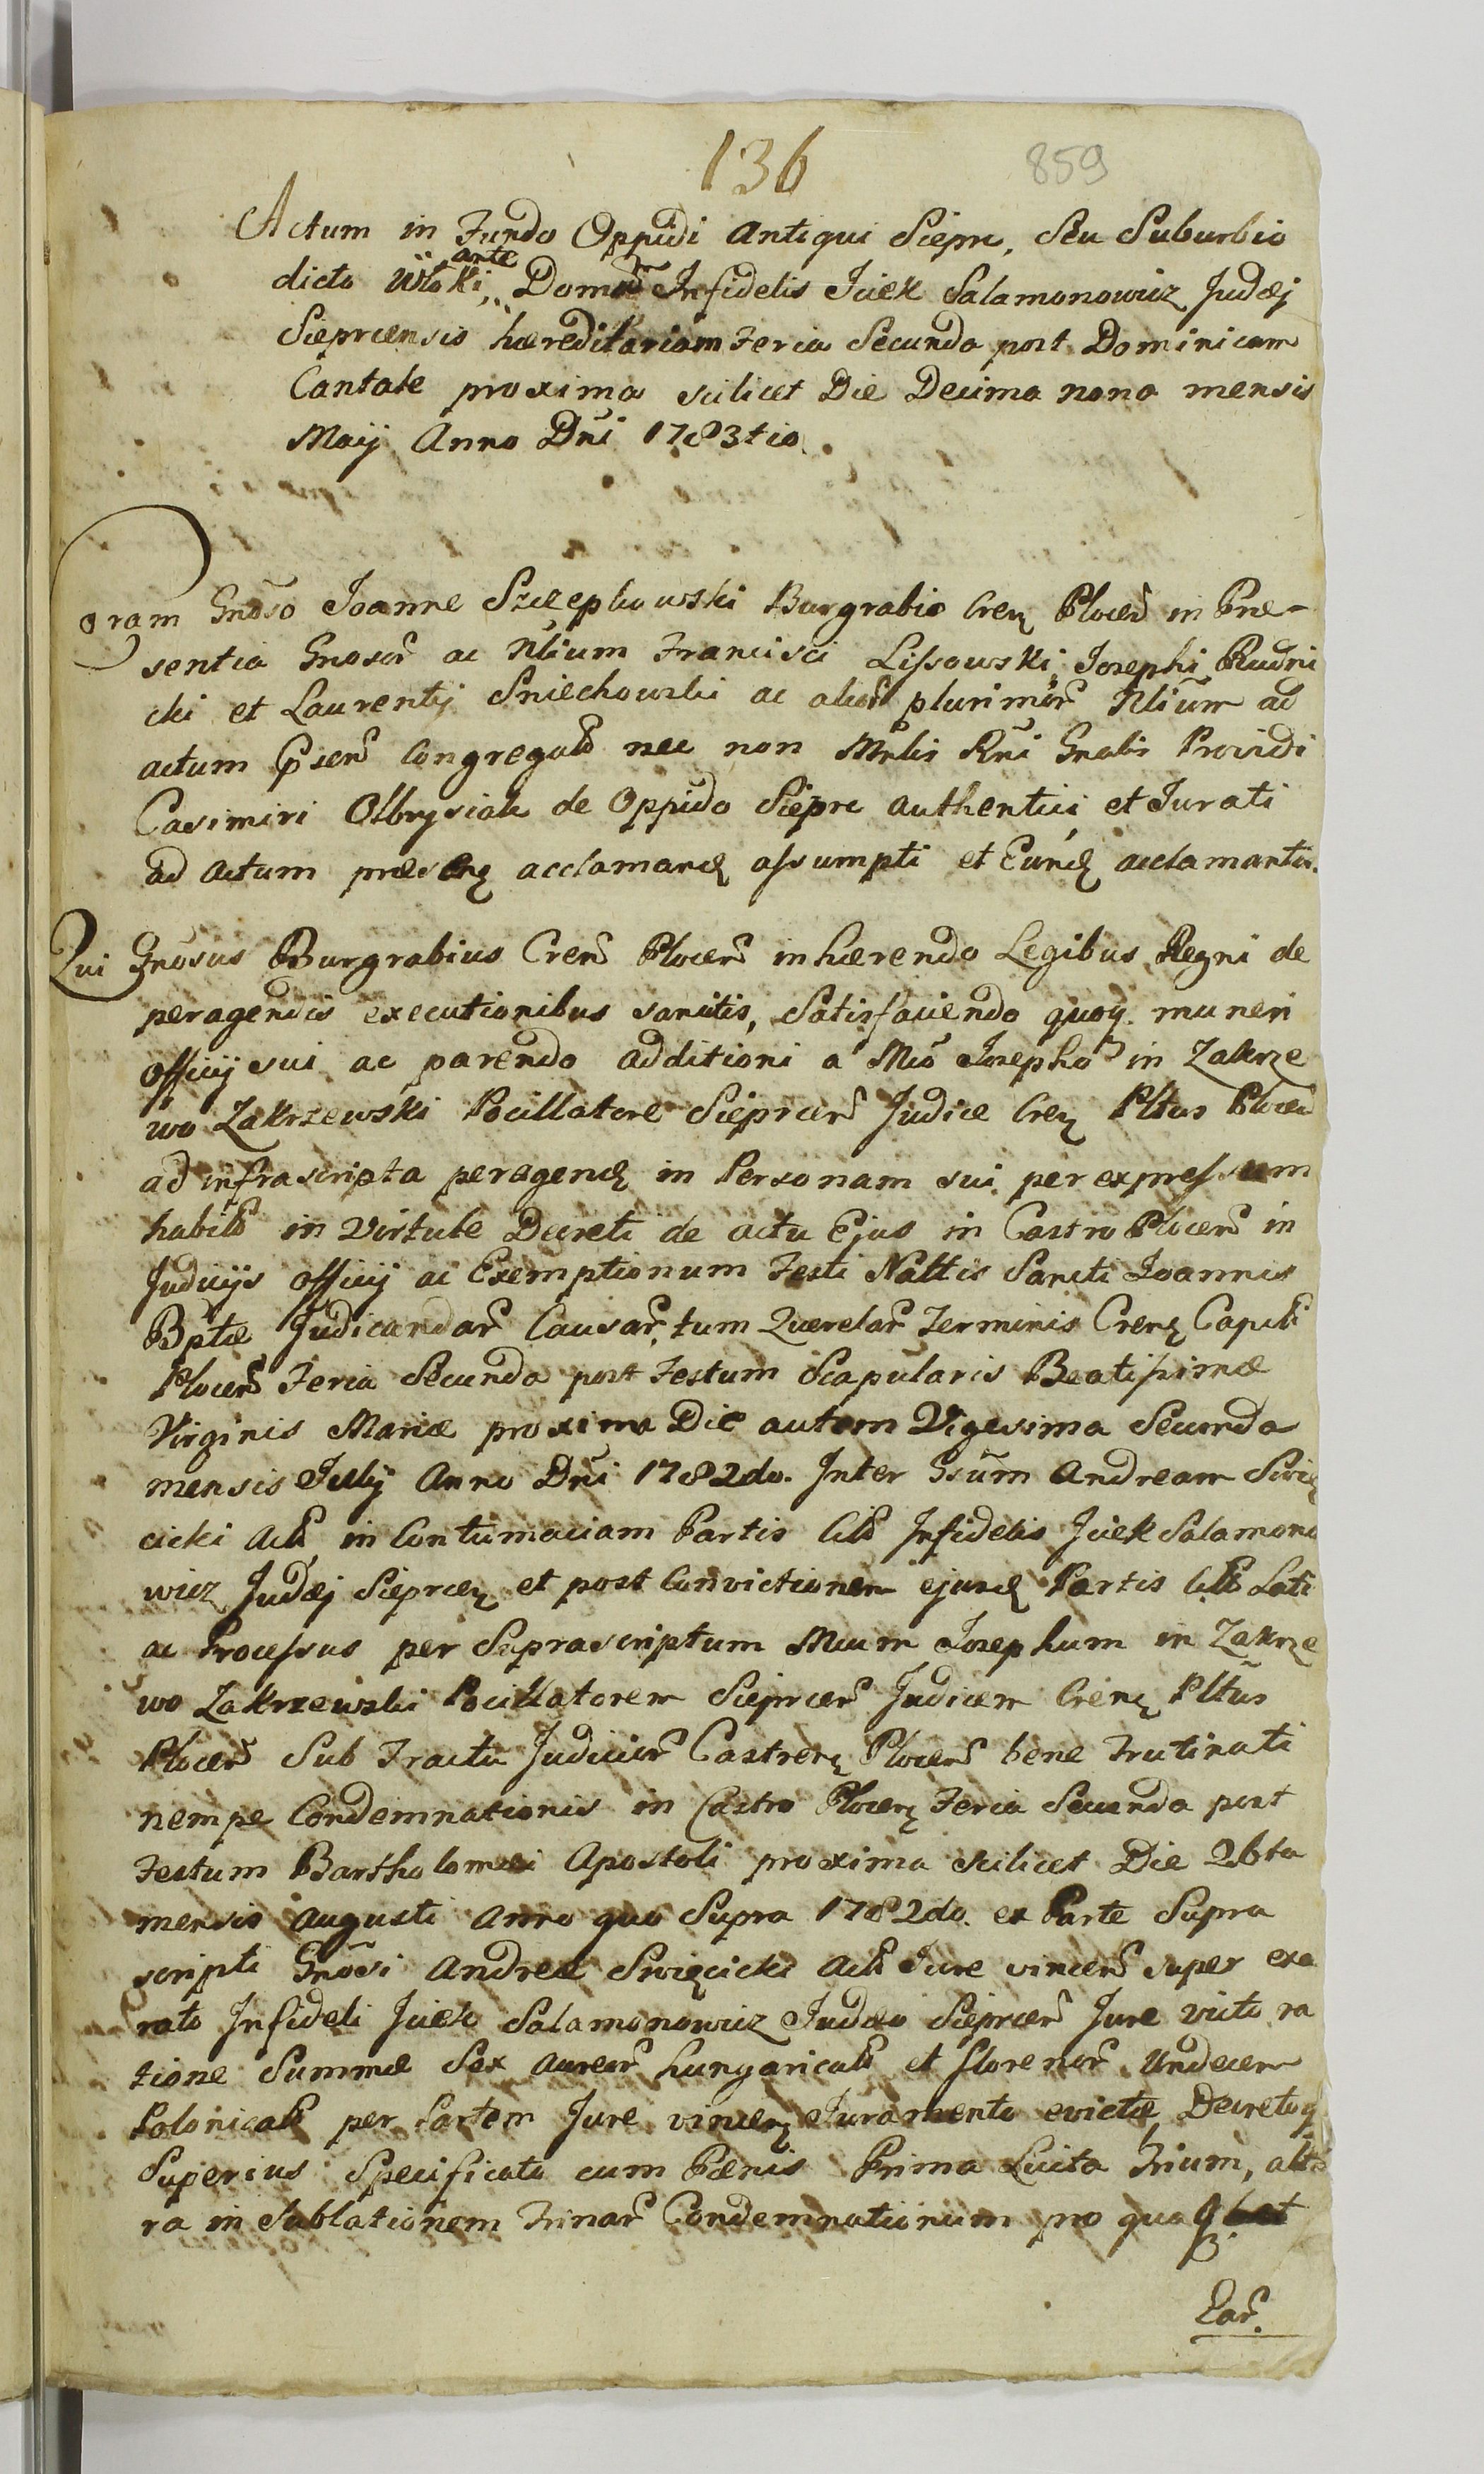 136
859
Actum in Fundo Oppidi Antiqui Sieprc, Seu Suburbio
dicto Włoki, ante Domum Infidelis Icek Salamonowicz Judæj
Sieprcensis hæreditariam Feria Secunda post Dominicam
Cantate proxima scilicet Die Decima nona mensis
Maij Anno Dñi 1783tio.
Coram Gnoso Joanne Szczepkowski Burgrabio Cren Plocen in Præ-
sentia Gnosor ac Nlium Francisci Lissowski, Josephi Rudni
cki et Laurentij Sniechowski ac alior plurimor Nlium ad
actum psen Congregat nec non Mnlis Rñi Gnalis Providi
Casimiri Olbrysiak de Oppido Sieprc authentici et Jurati
ad actum præsens acclamand assumpti et Eund acclamantis.
Qui Gnosus Burgrabius Cren Plocen inhærendo Legibus Regni de
peragendis executionibus sancitis, Satisfaciendo quoq. muneri
officij sui ac parendo additioni a Mco Josepho in Zakrze
wo Zakrzewski Pocillatore Sieprcen Judice Cren Pltus Plocen
ad infrascripta peragend in Personam sui per expressum
habit in Virtute Decreti de actu Ejus in Castro Plocen in
Judicijs officij ac Exemptionum Festi Nattis Sancti Joannis
Bptæ Judicandar Causar, tum Querelar Terminis Cren Capitli
Plocen Feria Secunda post Festum Scapularis Beatissimæ
Virginis Mariæ proxima Die autem Vigesima Secunda
mensis Julij Anno Dñi 1782do. Inter Gsum Andream Swię
cicki Act in Contumaciam Partis Cit Infidelis Icek Salamono
wicz Judæj Sieprcen et post Convictionem ejusd Partis Cit Lati
ac Processus per Suprascriptum Mcum Josephum in Zakrze
wo Zakrzewski Pocillatorem Sieprcen Judicem Cren Pltus
Plocen Sub Tractu Judicior Castren Plocen bene Trutinati
nempe Condemnationis in Castro Plocen Feria Secunda post
Festum Bartholomæi Apostoli proxima scilicet Die 26ta
mensis Augusti Anno quo Supra 1782do. ex Parte Supra
scripti Gnosi Andreæ Swięcicki Act Jure vincen super exa
rato Infideli Icek Salamonowicz Judæo Sieprcen Jure victo ra
tione Summæ Sex Aureor hungarical et florenor Undecem
Polonical per Partem Jure vincen Juramento evictæ, Decretoq
Superius Specificato cum Pænis Prima Lucta Trium, alte
ra in Sublationem Trinar Condemnationum pro qua
Ear.